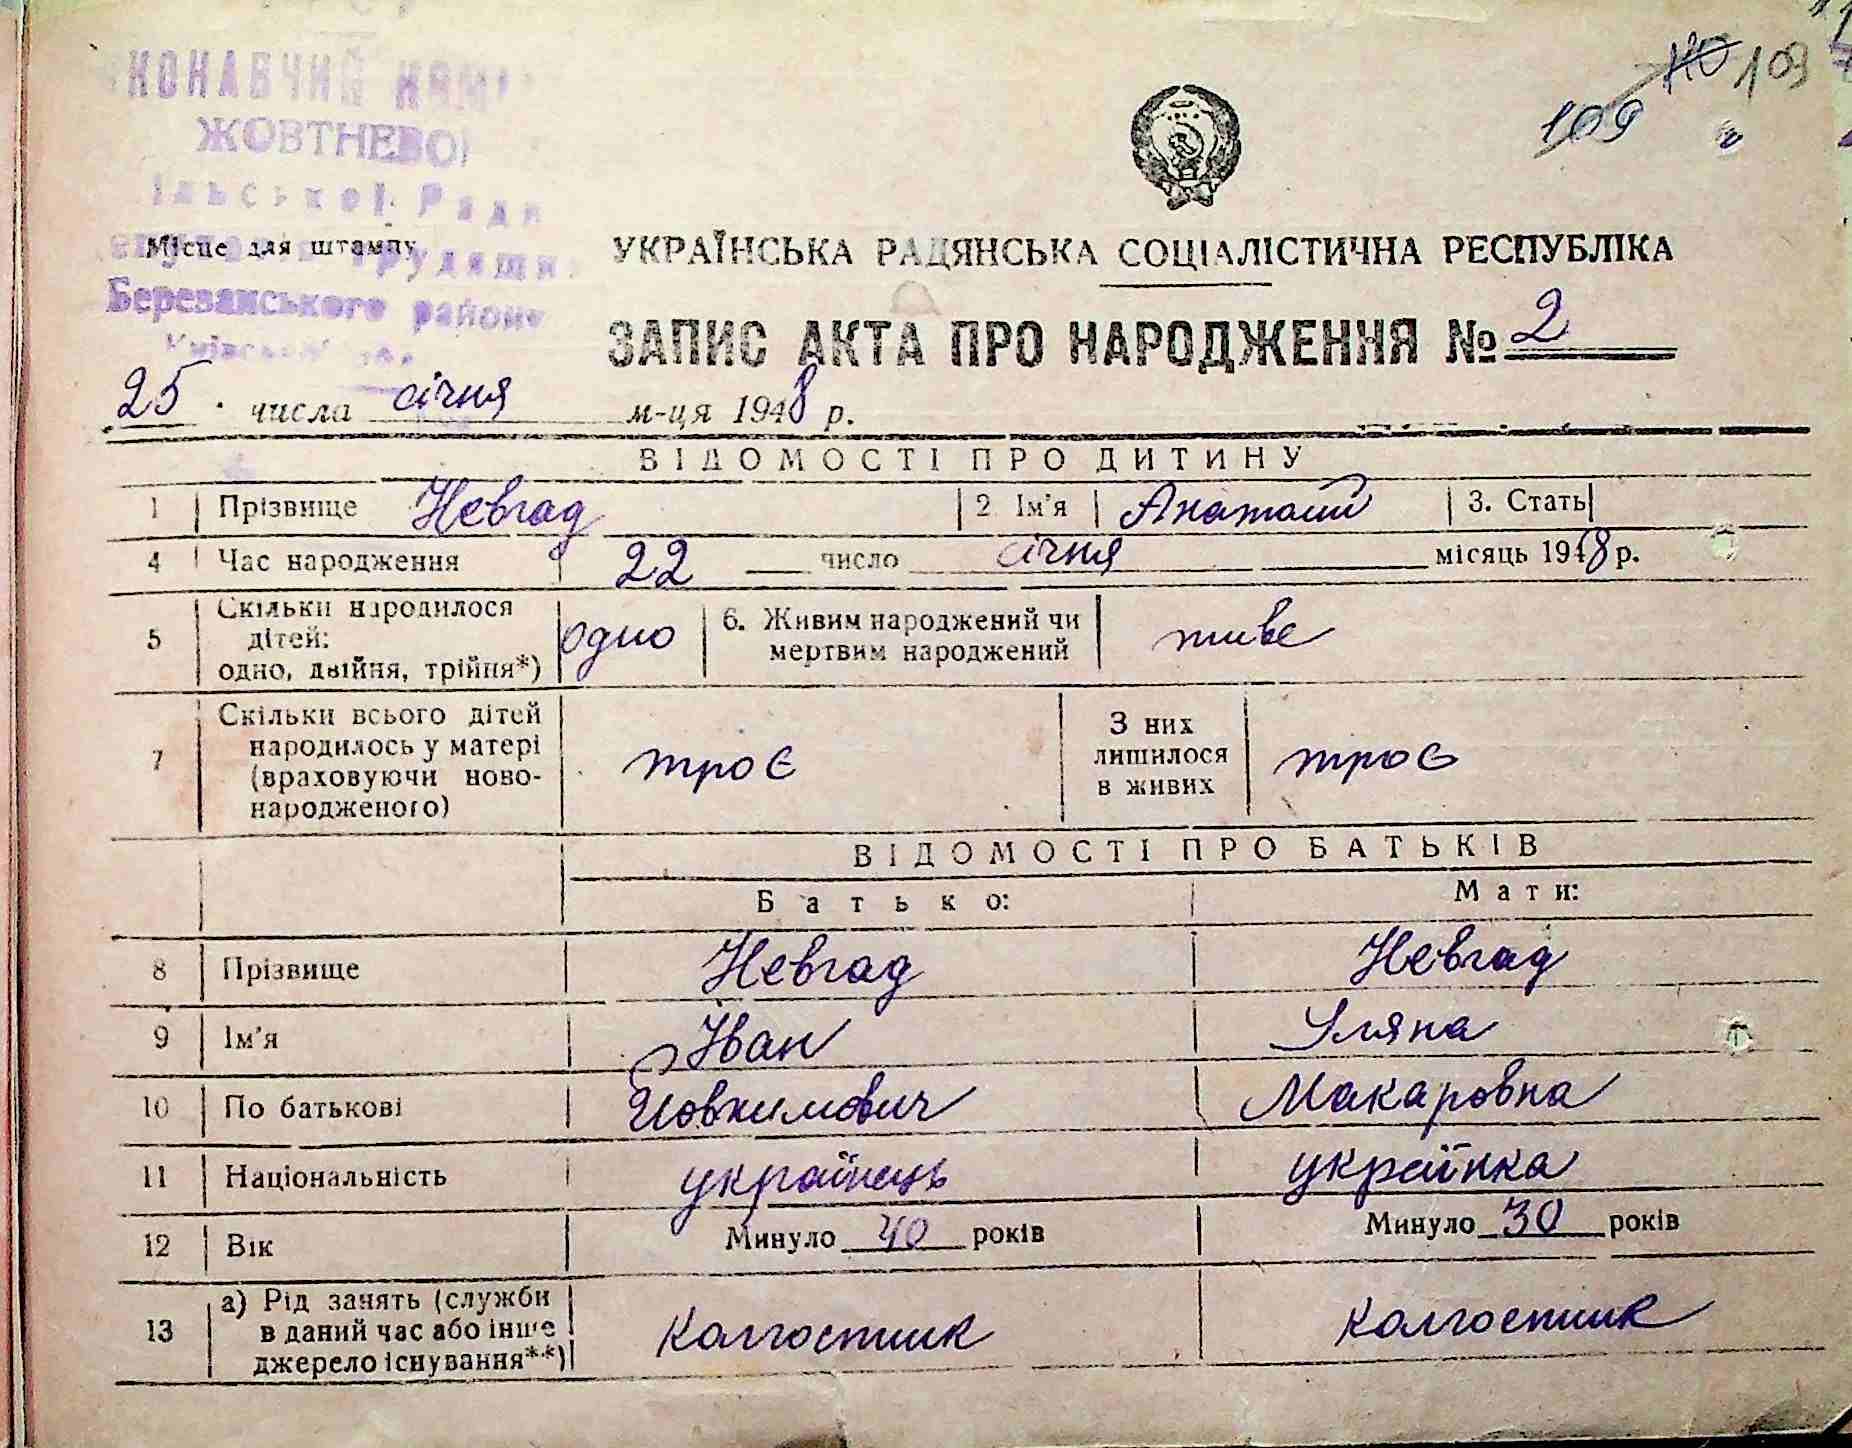 110 109
109
КОНАВЧИЙ КОМІ
ЖОВТНЕВОЇ
ільської Ради
Місце для штампу
депутатів трудящих
Березанського району
УКРАЇНСЬКА РАДЯНСЬКА СОЦІАЛІСТИЧНА РЕСПУБЛІКА
ЗАПИС АКТА ПРО НАРОДЖЕННЯ № 2
25 числа січня м-ця 1948 р.
ВІДОМОСТІ ПРО ДИТИНУ
1 Прізвище Невгад 2 Ім'я Анатолий 3. Стать
4 Час народження 22 число січня місяць 1948 р.
5 Скільки народилося
дітей:
одно, двійня, трійня*)
одно
6. Живим народжений чи
мертвим народжений
живе
7 Скільки всього дітей
народилось у матері
(враховуючи ново-
народженого)
троє
З них
лишилося
в живих
троє
ВІДОМОСТІ ПРО БАТЬКІВ
Батько: Мати:
8 Прізвище Невгад Невгад
9 Ім'я Іван Уляна
10 По батькові Йовхимович Макаровна
11 Національність українець українка
12 Вік Минуло 40 років Минуло 30 років
13 а) Рід занять (служби
в даний час або інше
джерело існування**)
Колгостник Колгостник